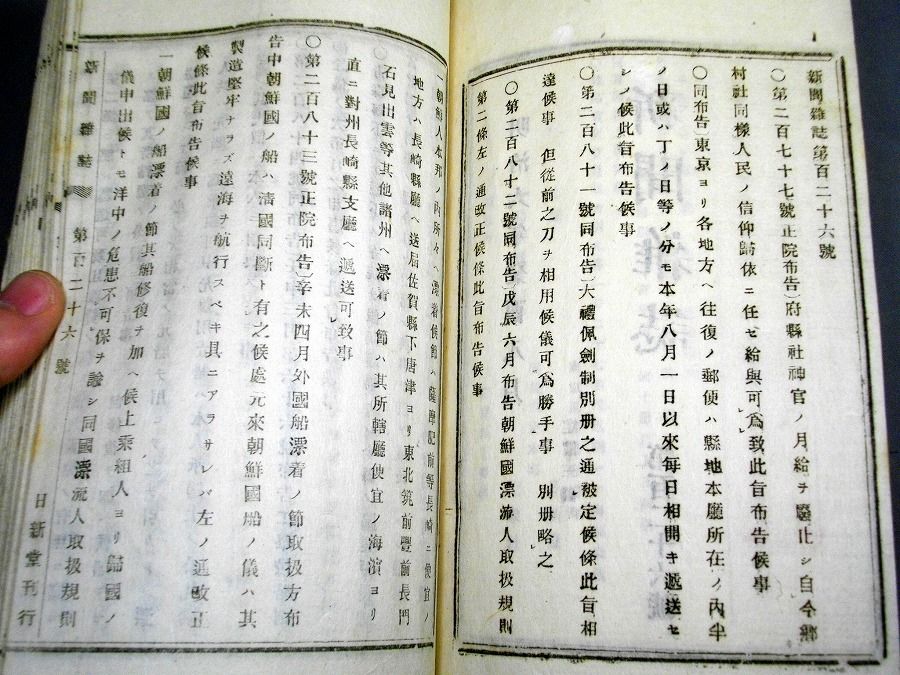 新聞雜誌第百二十六號
〇第二百七十七號正院布告)府縣社神官ノ月給ヲ廢止シ自今鄕
村社同樣人民ノ信仰歸依ニ任セ給與可爲致此旨布告候事
〇同布告東京ヨリ各地方ヘ往復ノ郵便ハ縣地本廳所在ノ内半
ノ日或ハ丁ノ日等ノ分モ本年八月一日以來每日相開キ遞送セ
シノ候此旨布告候事
〇第二百八十一號同布告)大禮佩劍制別册之通被定候條此旨相
達候事 但從前之刀ヲ相用候儀可爲勝手事 別册略之
〇第二百八十二號同布告)戊辰六月布告朝鮮國漂流人取扱規則
第二條左ノ通改正候條此旨布告候事
一朝鮮人本邦ノ内所々ヘ漂着候節ハ薩摩肥前等長崎ニ便宜ノ
地方ハ長崎縣廳ヘ送屆佐賀縣下唐津ヨリ東北筑前豐前長門
石見出雲等其他諸州ヘ漂着ノ節ハ其所轄廳便宜ノ海濱ヨリ
直ニ對州長崎縣支廳ヘ遞送可致事
〇第二百八十三號正院布告)辛未四月外國船漂着ノ節取扱方布
告中朝鮮ノ船ハ淸國同斷ト有之候處元來朝鮮國船ノ儀ハ其
製造堅牢ナラズ遠海ヲ航行スベキ具ニアラサレバ左ノ通改正
候條此旨布告候事
一朝鮮國ノ船漂着ノ節其船修復ヲ加ヘ候上乘組人ヨリ歸國ノ
儀申出候トモ洋中ノ危患不可保ヲ諭シ同國漂流人取扱規則
新聞雜誌 第百二十六號 日新堂刊行